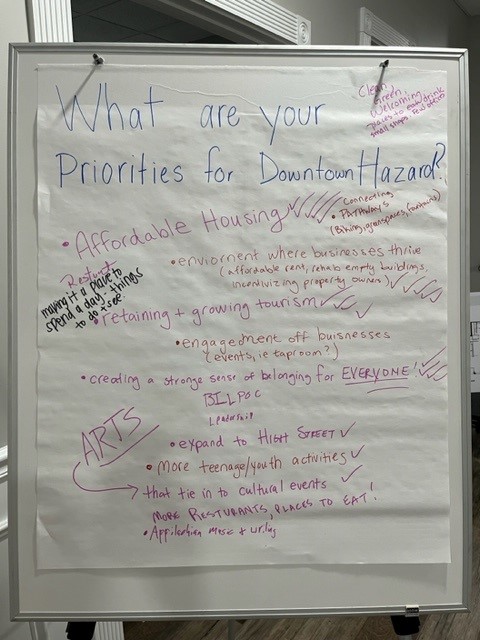 What are your
Priorities for Downtown Hazard?
Clean
Green
Welcoming
places to eat/drink
small shops
• Affordable Housing ✓✓
Connecting
• Pathways
(Biking, greenspaces,
• enviornment where businesses thrive
(affordable rent, rehab empty buildings,
incentivizing property owner) ✓
making it a place to
spend a day - things
to do + see.
• retaining + growing tourism ✓✓✓
• engagedment off buisnesses
(events, ie taproom?)
• creating a stronge sense of belonging for EVERYONE! ✓
BILPOC
Leadership
ARTS
• expand to HIGH STREET ✓
• More teenage/youth activities ✓
that tie in to cultural events ✓
MORE RESTURANTS, PLACES TO EAT!